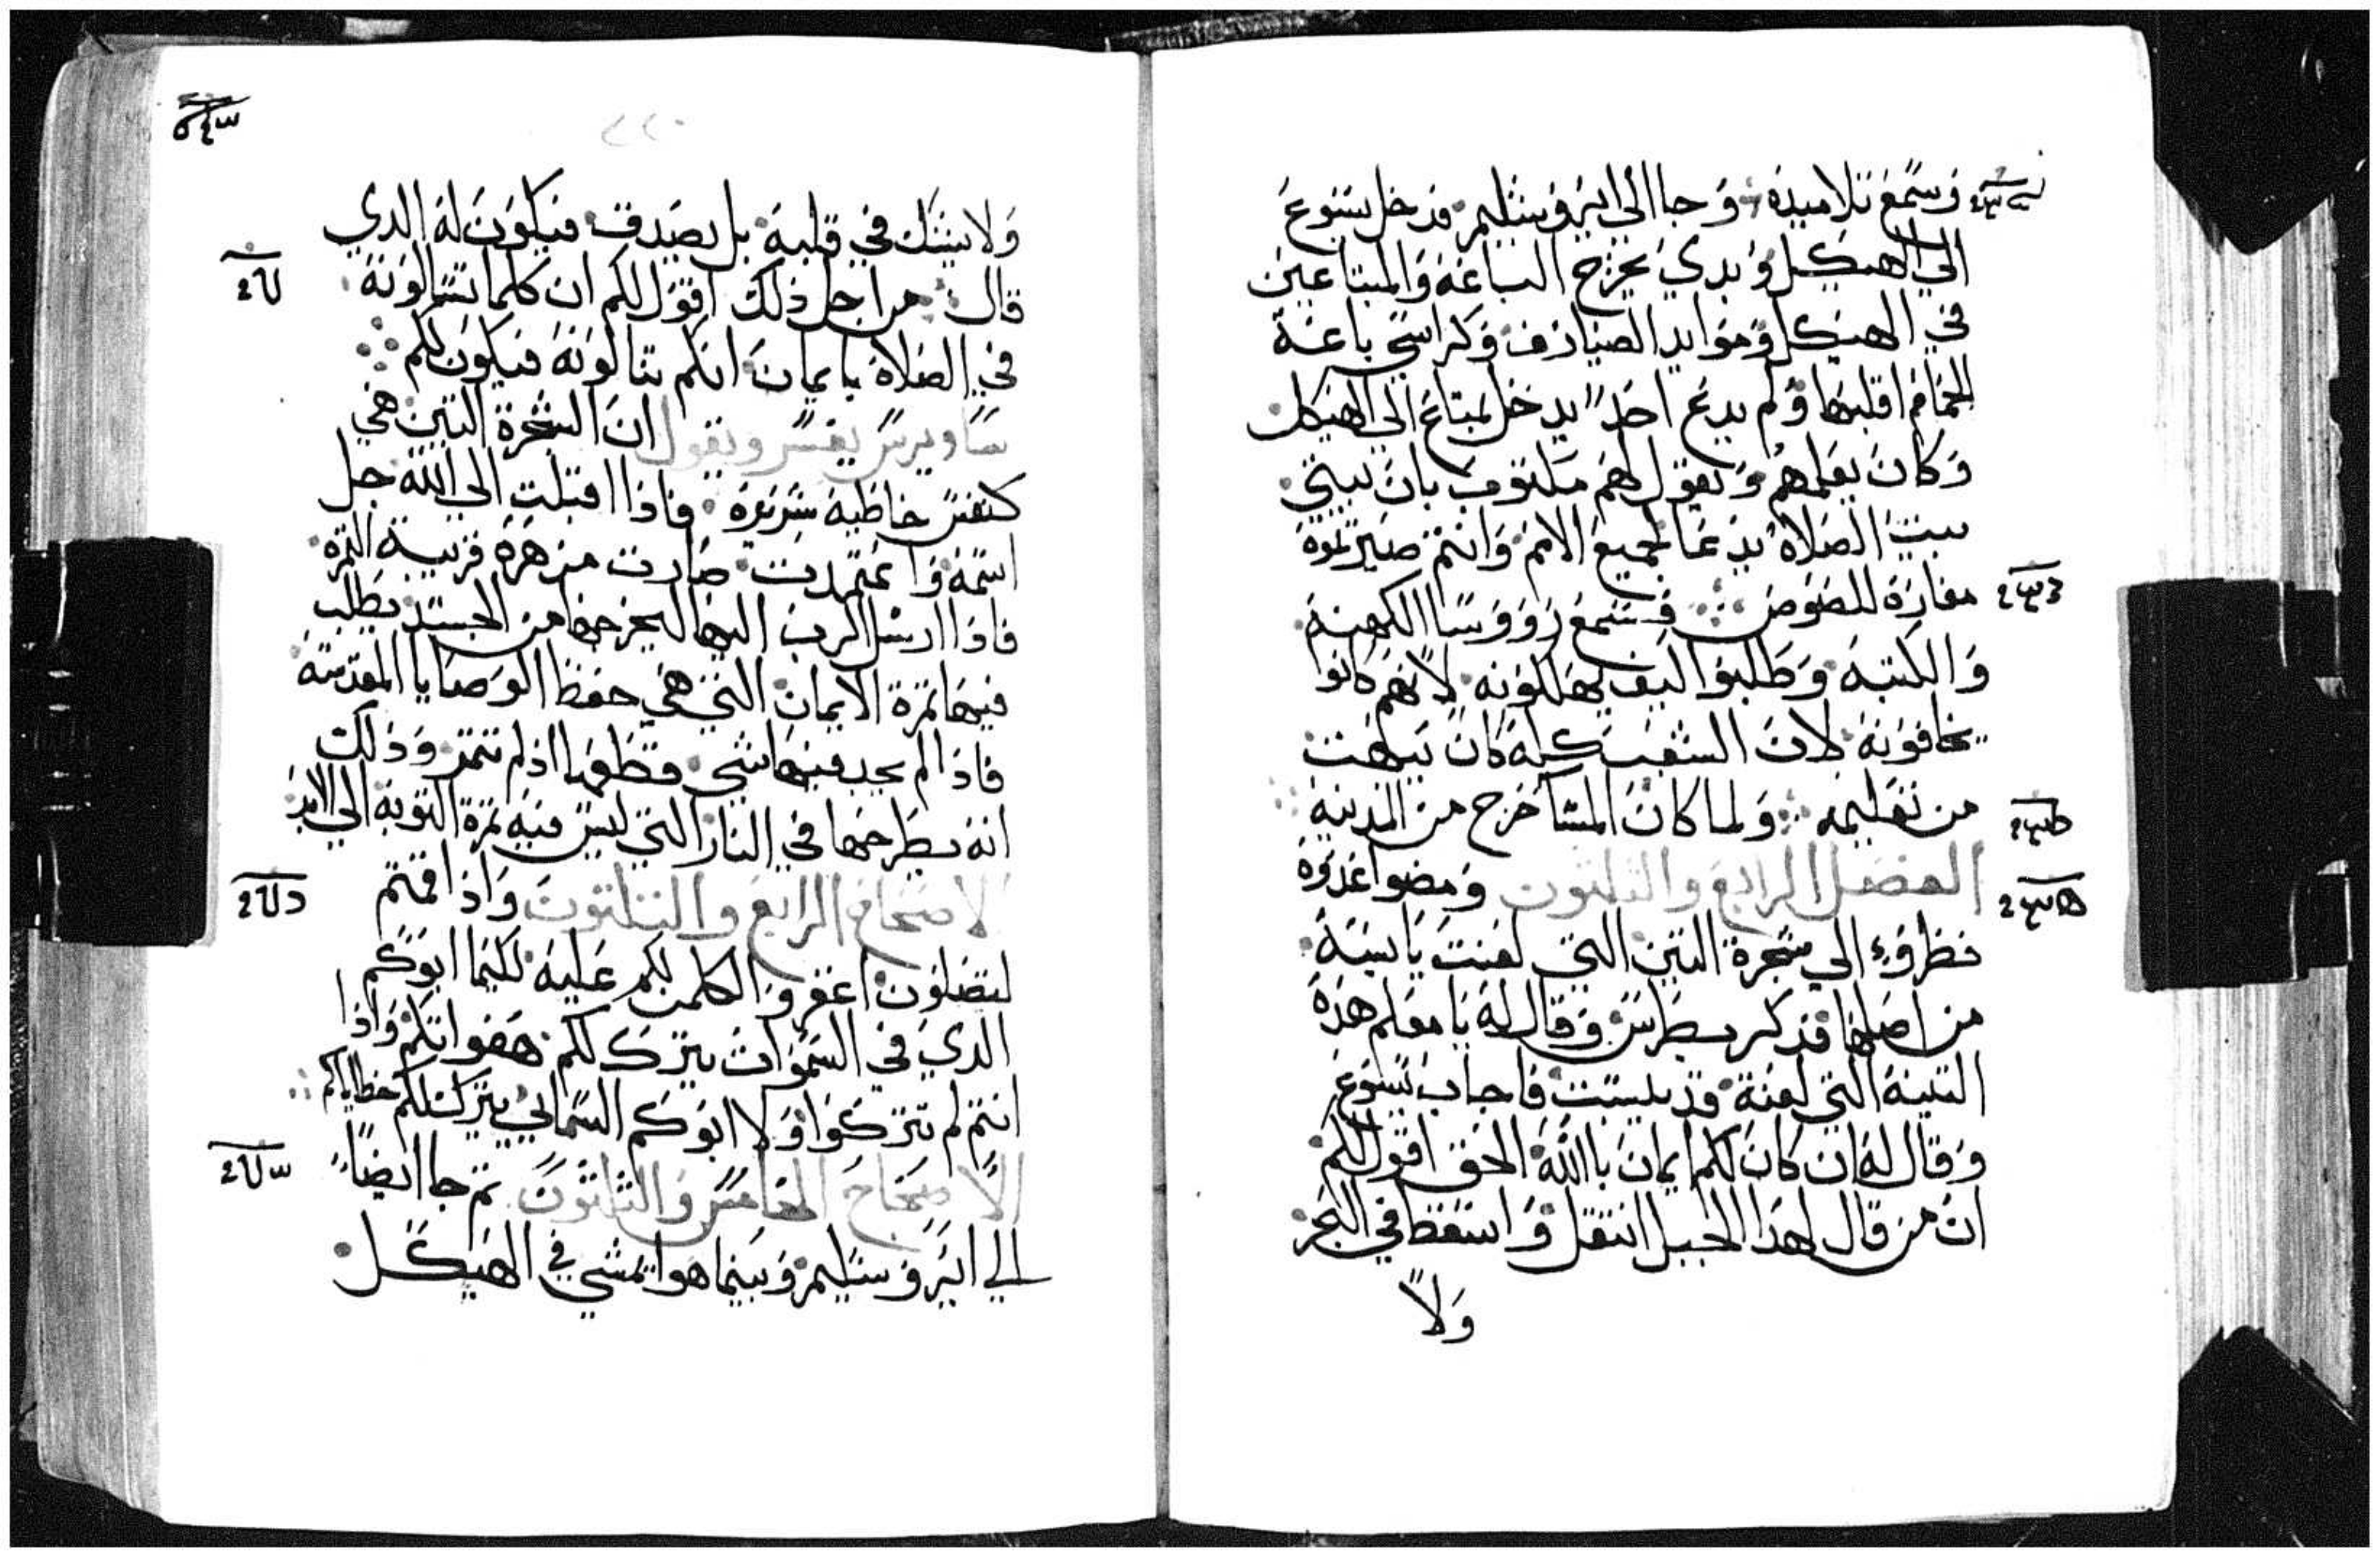 وسمع تلاميذه وجا الى ايروشليم فدخل يسوع
الى الهيكل وبدي يخرج الباعه والمبتاعين
في الهيكل وموايد الصيارف وكراسي باعة
الحمام اقلبها ولم يدع احد يدخل بمتاع الى الهيكل
وكان يعلمهم ويقول لهم مكتوب بان بيتي
بيت الصلاة يدعا لجميع الامم وانتم صيرتموه
مغارة للصوص فسمع رووسا الكهنه
والكتبه وطلبوا كيف يهلكونه لانهم كانوا
يخافونه لان الشعب كله كان يبهت
من تعليمه ولما كان المسا خرج من المدينه
الفصل الرابع والثلثون ومضوا غدوه
نظروه الي شجرة التين التي لعنت يابسه
من اصلها فذكر بطرس وقال له يا معلم هذه
التينه التي لعنة قد يبست فاجاب يسوع
وقال له ان كان لكم ايمان بالله الحق اقول لكم
ان من قال لهذا الجبل انتقل واسقط في البحر
ولا
٢٢٠
ولا يشك في قلبه بل يصدق فيكون له الدي
قال من اجل ذلك اقول لكم ان كلما تسالونه
في الصلاة بايمان انكم تنالونه فيكون لكم
ساويرس يفسر ويقول ان الشجرة التين هي
كنفس خاطيه شريره فاذا اقبلت الى الله جل
اسمه واعتمدت صارت مزهره قريبة الثمره
فاذا ارسل الرب اليها ليخرجها من الجسد يطلب
فيها ثمرة الايمان التي هي حفظ الوصايا المقدسه
فاذا لم يجد فيها شي قطعها اذ لم تثمر وذلك
انه يطرحها في النار التي ليس فيه ثمرة التوبه الي الابد
الاصحاح الرابع والثلثون واذا قمتم
لتصلون اغفروا لكلمن لكم عليه لكيما ابوكم
الدي في السموات يترك لكم هفواتكم واذا
انتم لم تتركوا ولا ابوكم السماي يترك لكم خطاياكم
الاصحاح الخامس والثلثون ثم جا ايضا
الي ايروشليم وبينما هو يمشي في الهيكل